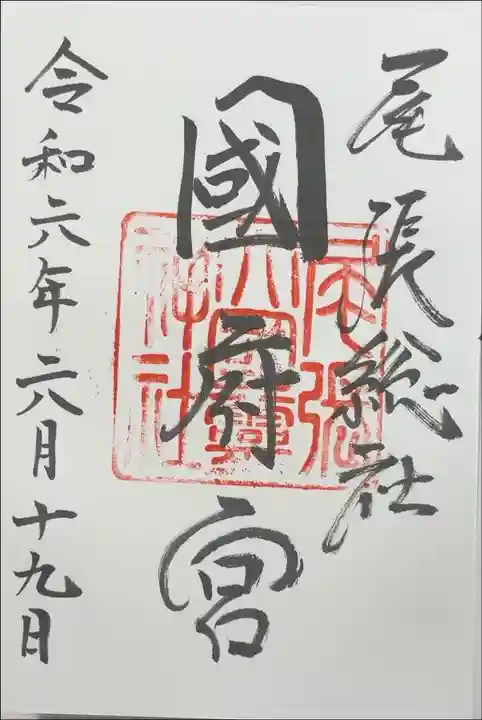 尾張総社
國府宮
令和六年六月十九日
尾張
大國霊
神社